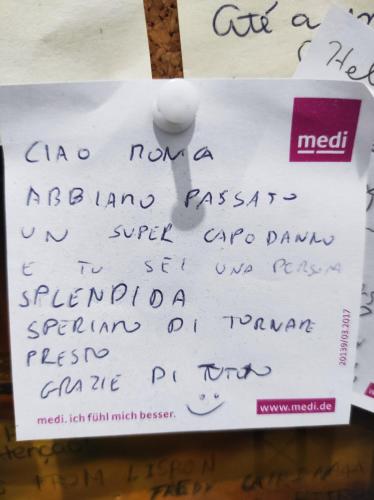 até a
Hel
medi
CIAO MONICA
ABBIAMO PASSATO
UN SUPER CAPODANNO
E TU SEI UNA PERSONA
SPLENDIDA
SPERIAMO DI TORNARE
PRESTO
GRAZIE DI TUTTO
medi. ich fühl mich besser.
www.medi.de
20139/03.2017
FROM LISBON